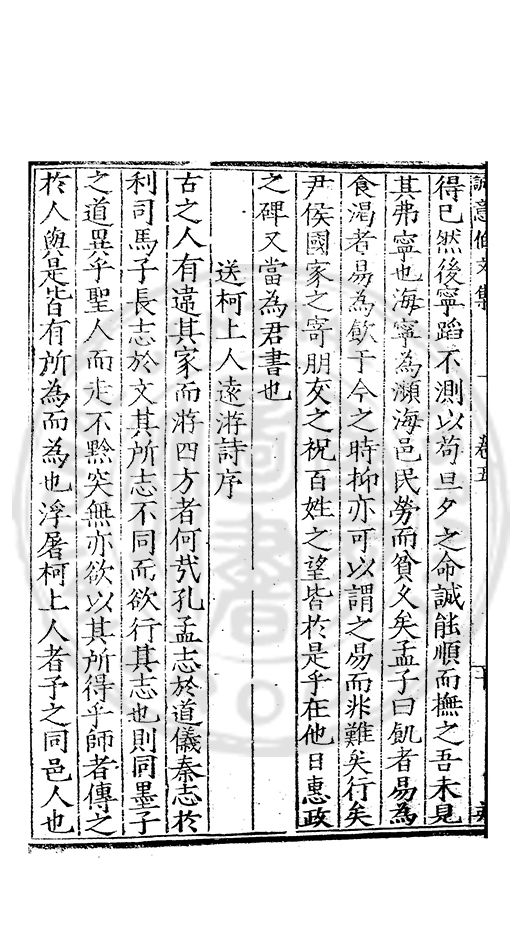 誠意伯文集 卷五
得已然後寧蹈不測以苟旦夕之命誠能順而撫之吾未見
其弗寧也海寧為瀕海邑民勞而貧久矣孟子曰飢者易為
食渴者易為飲于今之時抑亦可以謂之易而非難矣行矣
尹侯國家之寄朋友之祝百姓之望皆於是乎在他日惠政
之碑又當為君書也
送柯上人遠游詩序
古之人有違其家而游四方者何哉孔孟志於道儀秦志於
利司馬子長志於文其所志不同而欲行其志也則同墨子
之道異乎聖人而走不黔突無亦欲以其所得乎師者傳之
於人與是皆有所為而為也浮屠柯上人者予之同邑人也